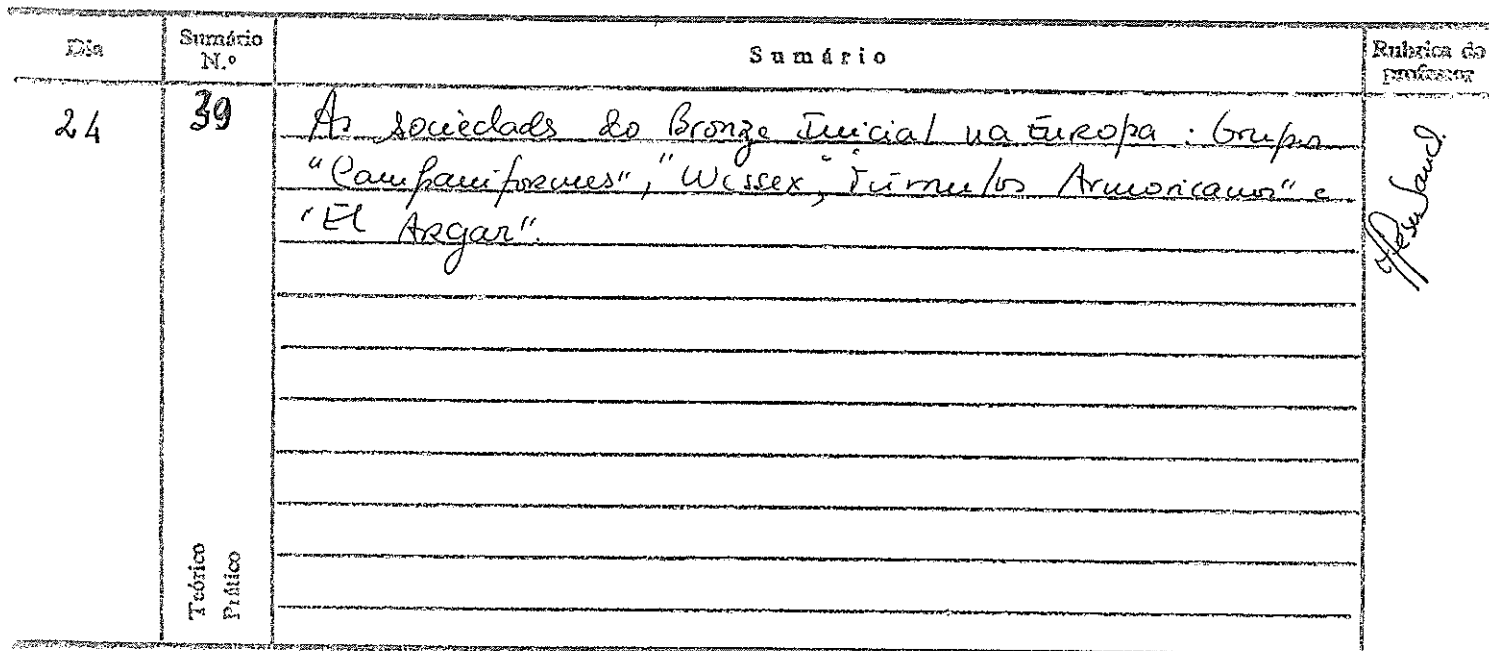 Dia
Sumário N.º
Sumário
Rubrica do professor
24
39
As sociedads do Bronze Inicial na Europa: Grupos
"Campaniformes", "Wessex", "Túmulos Armoricanos" e
"El Argar".
Teórico
Prático